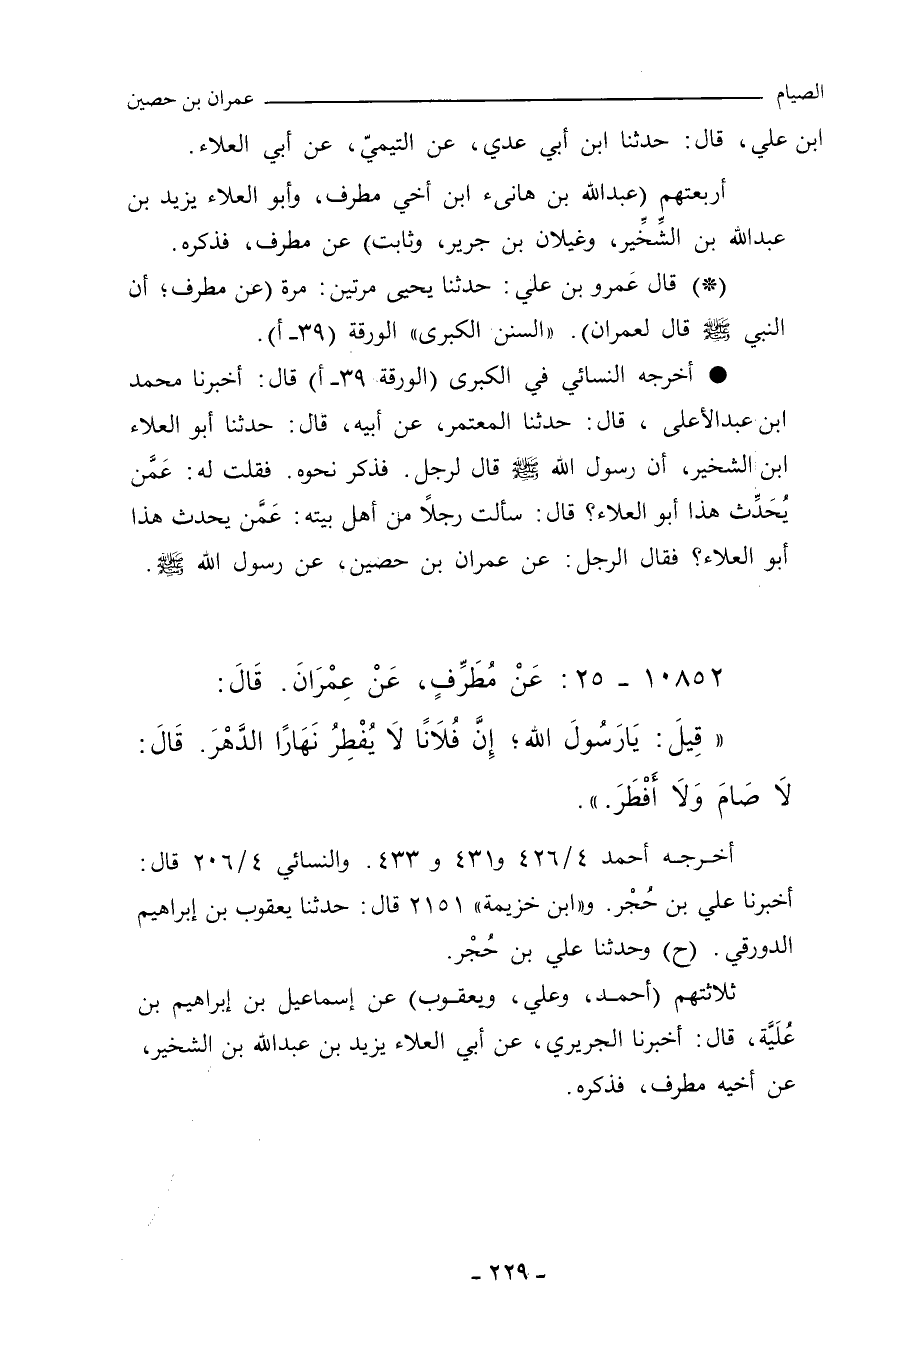 الصيام ــــــــ عمران بن حصين
ابن علي، قال: حدثنا ابن أبي عدي، عن التيميّ، عن أبي العلاء.
أربعتهم (عبدالله بن هانىء ابن أخي مطرف، وأبو العلاء يزيد بن
عبدالله بن الشِّخِّير، وغيلان بن جرير، وثابت) عن مطرف، فذكره.
(*) قال عَمرو بن علي: حدثنا يحيى مرتين: مرة (عن مطرف؛ أن
النبي ﷺ قال لعمران). «السنن الكبرى» الورقة (٣٩ـ أ).
● أخرجه النسائي في الكبرى (الورقة ٣٩ـ أ) قال: أخبرنا محمد
ابن عبدالأعلى ، قال: حدثنا المعتمر، عن أبيه، قال: حدثنا أبو العلاء
ابن الشخير، أن رسول الله ﷺ قال لرجل. فذكر نحوه. فقلت له: عَمَّن
يُحَدِّث هذا أبو العلاء؟ قال: سألت رجلاً من أهل بيته: عَمَّن يحدث هذا
أبو العلاء؟ فقال الرجل: عن عمران بن حصين، عن رسول الله ﷺ.
١٠٨٥٢ ـ ٢٥: عَنْ مُطَرِّفٍ، عَنْ عِمْرَانَ. قَالَ:
« قِيلَ: يَارَسُولَ الله؛ إِنَّ فُلَانًا لَا يُفْطِرُ نَهَارًا الدَّهْرَ. قَالَ:
لَا صَامَ وَلَا أَفْطَرَ.».
أخـرجـه أحمد ٤/٤٢٦ و٤٣١ و ٤٣٣. والنسائي ٤/٢٠٦ قال:
أخبرنا علي بن حُجْر. و«ابن خزيمة» ٢١٥١ قال: حدثنا يعقوب بن إبراهيم
الدورقي. (ح) وحدثنا علي بن حُجْر.
ثلاثتهم (أحمـد، وعلي، ويعقـوب) عن إسماعيل بن إبراهيم بن
عُلَيَّة، قال: أخبرنا الجريري، عن أبي العلاء يزيد بن عبدالله بن الشخير،
عن أخيه مطرف، فذكره.
ـ ٢٢٩ ـ